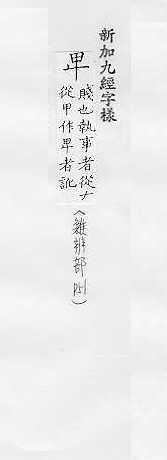 新加九經字樣
𤰞
賤也執事者從𠂇
從甲作卑者訛
(雜辨部 P51)